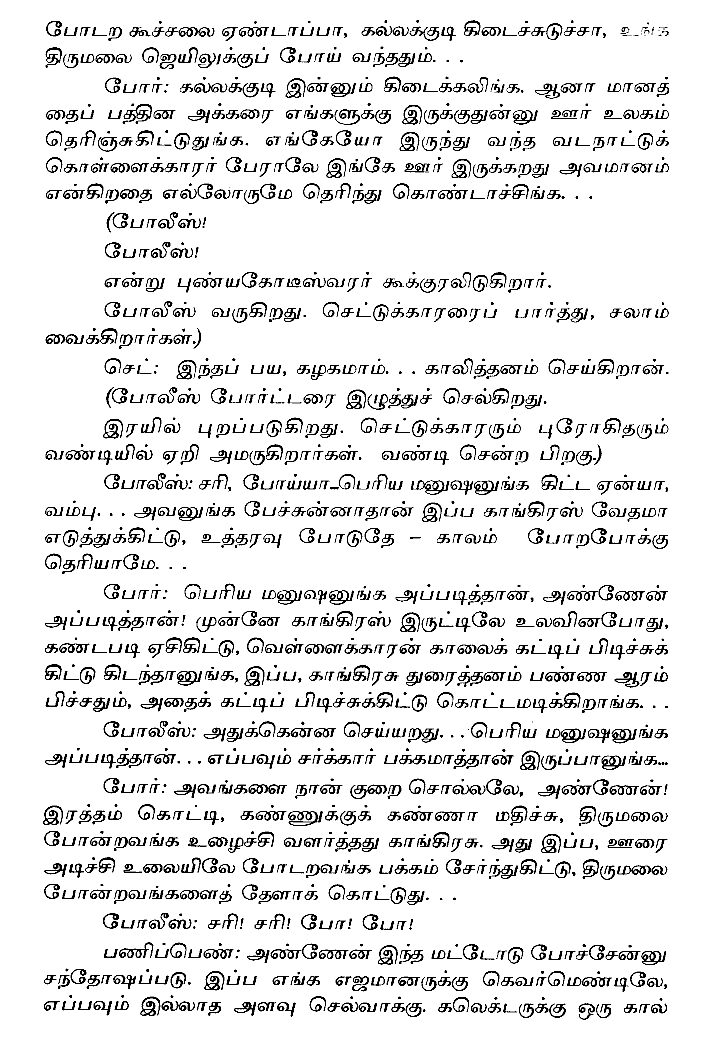 போடற கூச்சலை ஏண்டாப்பா, கல்லக்குடி கிடைச்சுடுச்சா, உங்க
திருமலை ஜெயிலுக்குப் போய் வந்ததும். . .
போர்: கல்லக்குடி இன்னும் கிடைக்கலிங்க. ஆனா மானத்
தைப் பத்தின அக்கரை எங்களுக்கு இருக்குதுன்னு ஊர் உலகம்
தெரிஞ்சுகிட்டுதுங்க. எங்கேயோ இருந்து வந்த வடநாட்டுக்
கொள்ளைக்காரர் பேராலே இங்கே ஊர் இருக்கறது அவமானம்
என்கிறதை எல்லோருமே தெரிந்து கொண்டாச்சிங்க. . .
(போலீஸ்!
போலீஸ்!
என்று புண்யகோடீஸ்வரர் கூக்குரலிடுகிறார்.
போலீஸ் வருகிறது. செட்டுக்காரரைப் பார்த்து, சலாம்
வைக்கிறார்கள்.)
செட்: இந்தப் பய, கழகமாம். . . காலித்தனம் செய்கிறான்.
(போலீஸ் போர்ட்டரை இழுத்துச் செல்கிறது.
இரயில் புறப்படுகிறது. செட்டுக்காரரும் புரோகிதரும்
வண்டியில் ஏறி அமருகிறார்கள். வண்டி சென்ற பிறகு.)
போலீஸ்: சரி, போய்யா...பெரிய மனுஷனுங்க கிட்ட ஏன்யா,
வம்பு. . . அவனுங்க பேச்சுன்னாதான் இப்ப காங்கிரஸ் வேதமா
எடுத்துக்கிட்டு, உத்தரவு போடுதே – காலம் போறபோக்கு
தெரியாமே. . .
போர்: பெரிய மனுஷனுங்க அப்படித்தான், அண்ணேன்
அப்படித்தான்! முன்னே காங்கிரஸ் இருட்டிலே உலவினபோது,
கண்டபடி ஏசிகிட்டு, வெள்ளைக்காரன் காலைக் கட்டிப் பிடிச்சுக்
கிட்டு கிடந்தானுங்க, இப்ப, காங்கிரசு துரைத்தனம் பண்ண ஆரம்
பிச்சதும், அதைக் கட்டிப் பிடிச்சுக்கிட்டு கொட்டமடிக்கிறாங்க. . .
போலீஸ்: அதுக்கென்ன செய்யறது. . . பெரிய மனுஷனுங்க
அப்படித்தான். . . எப்பவும் சர்க்கார் பக்கமாத்தான் இருப்பானுங்க...
போர்: அவங்களை நான் குறை சொல்லலே, அண்ணேன்!
இரத்தம் கொட்டி, கண்ணுக்குக் கண்ணா மதிச்சு, திருமலை
போன்றவங்க உழைச்சி வளர்த்தது காங்கிரசு. அது இப்ப, ஊரை
அடிச்சி உலையிலே போடறவங்க பக்கம் சேர்ந்துகிட்டு, திருமலை
போன்றவங்களைத் தேளாக் கொட்டுது. . .
போலீஸ்: சரி! சரி! போ! போ!
பணிப்பெண்: அண்ணேன் இந்த மட்டோடு போச்சேன்னு
சந்தோஷப்படு. இப்ப எங்க எஜமானருக்கு கெவர்மெண்டிலே,
எப்பவும் இல்லாத அளவு செல்வாக்கு. கலெக்டருக்கு ஒரு கால்